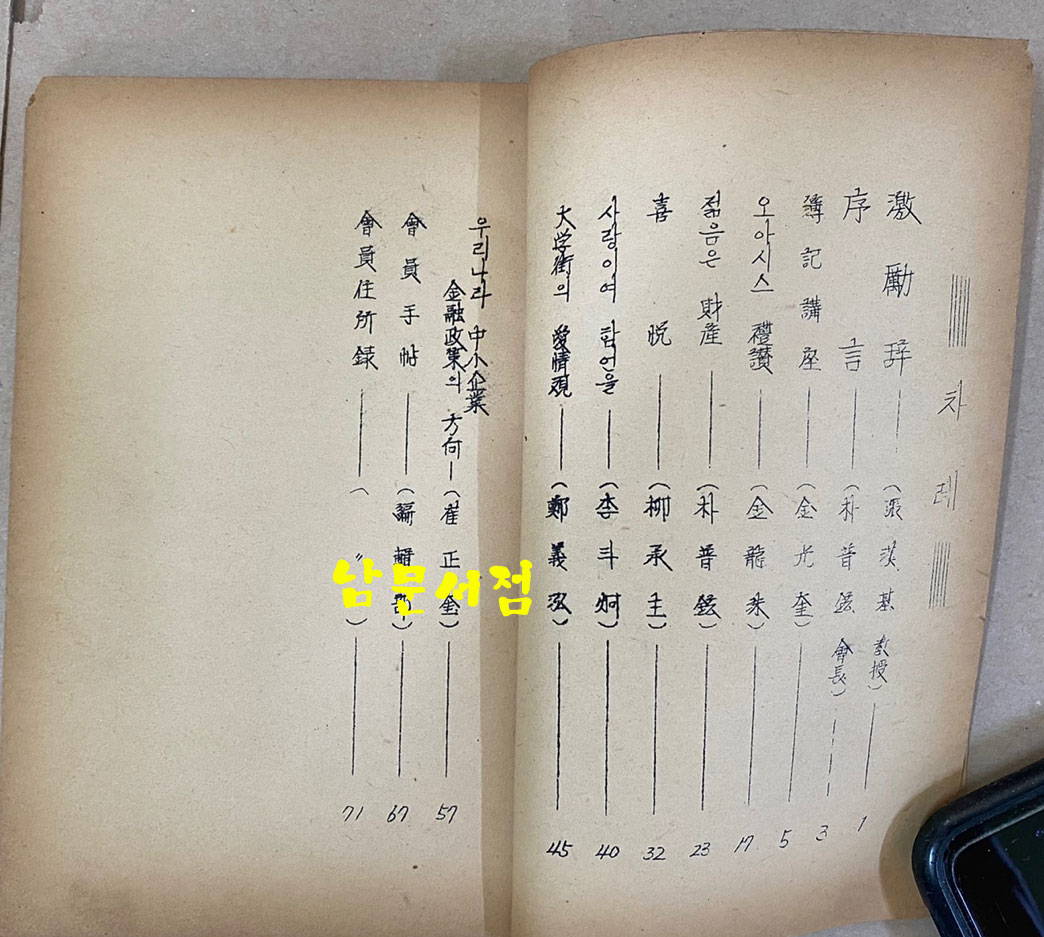 차례
激勵辞 (張漢基 教授) 1
序言 (朴普鉉 會長) 3
簿記講座 (金光奎) 5
오아시스 禮讃 (金龍洙) 17
젊음은 財産 (朴普鉉) 23
喜悦 (柳承主) 32
사랑이여 합언을 (李斗炯) 40
大学街의 愛情观 (鄭義泓) 45
우리나라 中小企業
金融政策의 方向 (崔正) 57
會員手帖 (編輯部) 67
會員住所錄 (〃) 71
남문서점